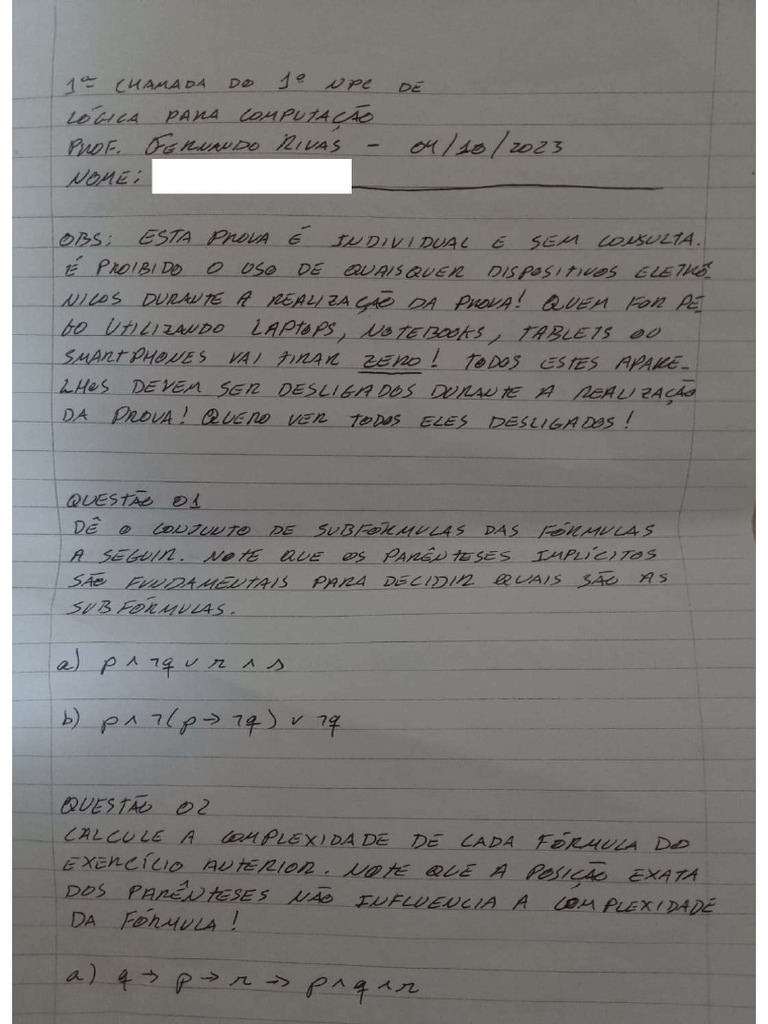 1ª CHAMADA DO 1º NPC DE
LÓGICA PARA COMPUTAÇÃO
PROF. FERNANDO RIVAS - 04/10/2023
NOME:
OBS: ESTA PROVA É INDIVIDUAL E SEM CONSULTA.
É PROIBIDO O USO DE QUAISQUER DISPOSITIVOS ELETRÔ-
NICOS DURANTE A REALIZAÇÃO DA PROVA! QUEM FOR PE-
GO UTILIZANDO LAPTOPS, NOTEBOOKS, TABLETS OU
SMARTPHONES VAI TIRAR ZERO! TODOS ESTES APARE-
LHOS DEVEM SER DESLIGADOS DURANTE A REALIZAÇÃO
DA PROVA! QUERO VER TODOS ELES DESLIGADOS!
QUESTÃO 01
DÊ O CONJUNTO DE SUBFÓRMULAS DAS FÓRMULAS
A SEGUIR. NOTE QUE OS PARÊNTESES IMPLÍCITOS
SÃO FUNDAMENTAIS PARA DECIDIR QUAIS SÃO AS
SUBFÓRMULAS.
a) p ∧ ¬q ∨ r ∧ s
b) p ∧ ¬(p → ¬q) ∨ ¬q
QUESTÃO 02
CALCULE A COMPLEXIDADE DE CADA FÓRMULA DO
EXERCÍCIO ANTERIOR. NOTE QUE A POSIÇÃO EXATA
DOS PARÊNTESES NÃO INFLUENCIA A COMPLEXIDADE
DA FÓRMULA!
a) q → p → r → p ∧ q ∧ r